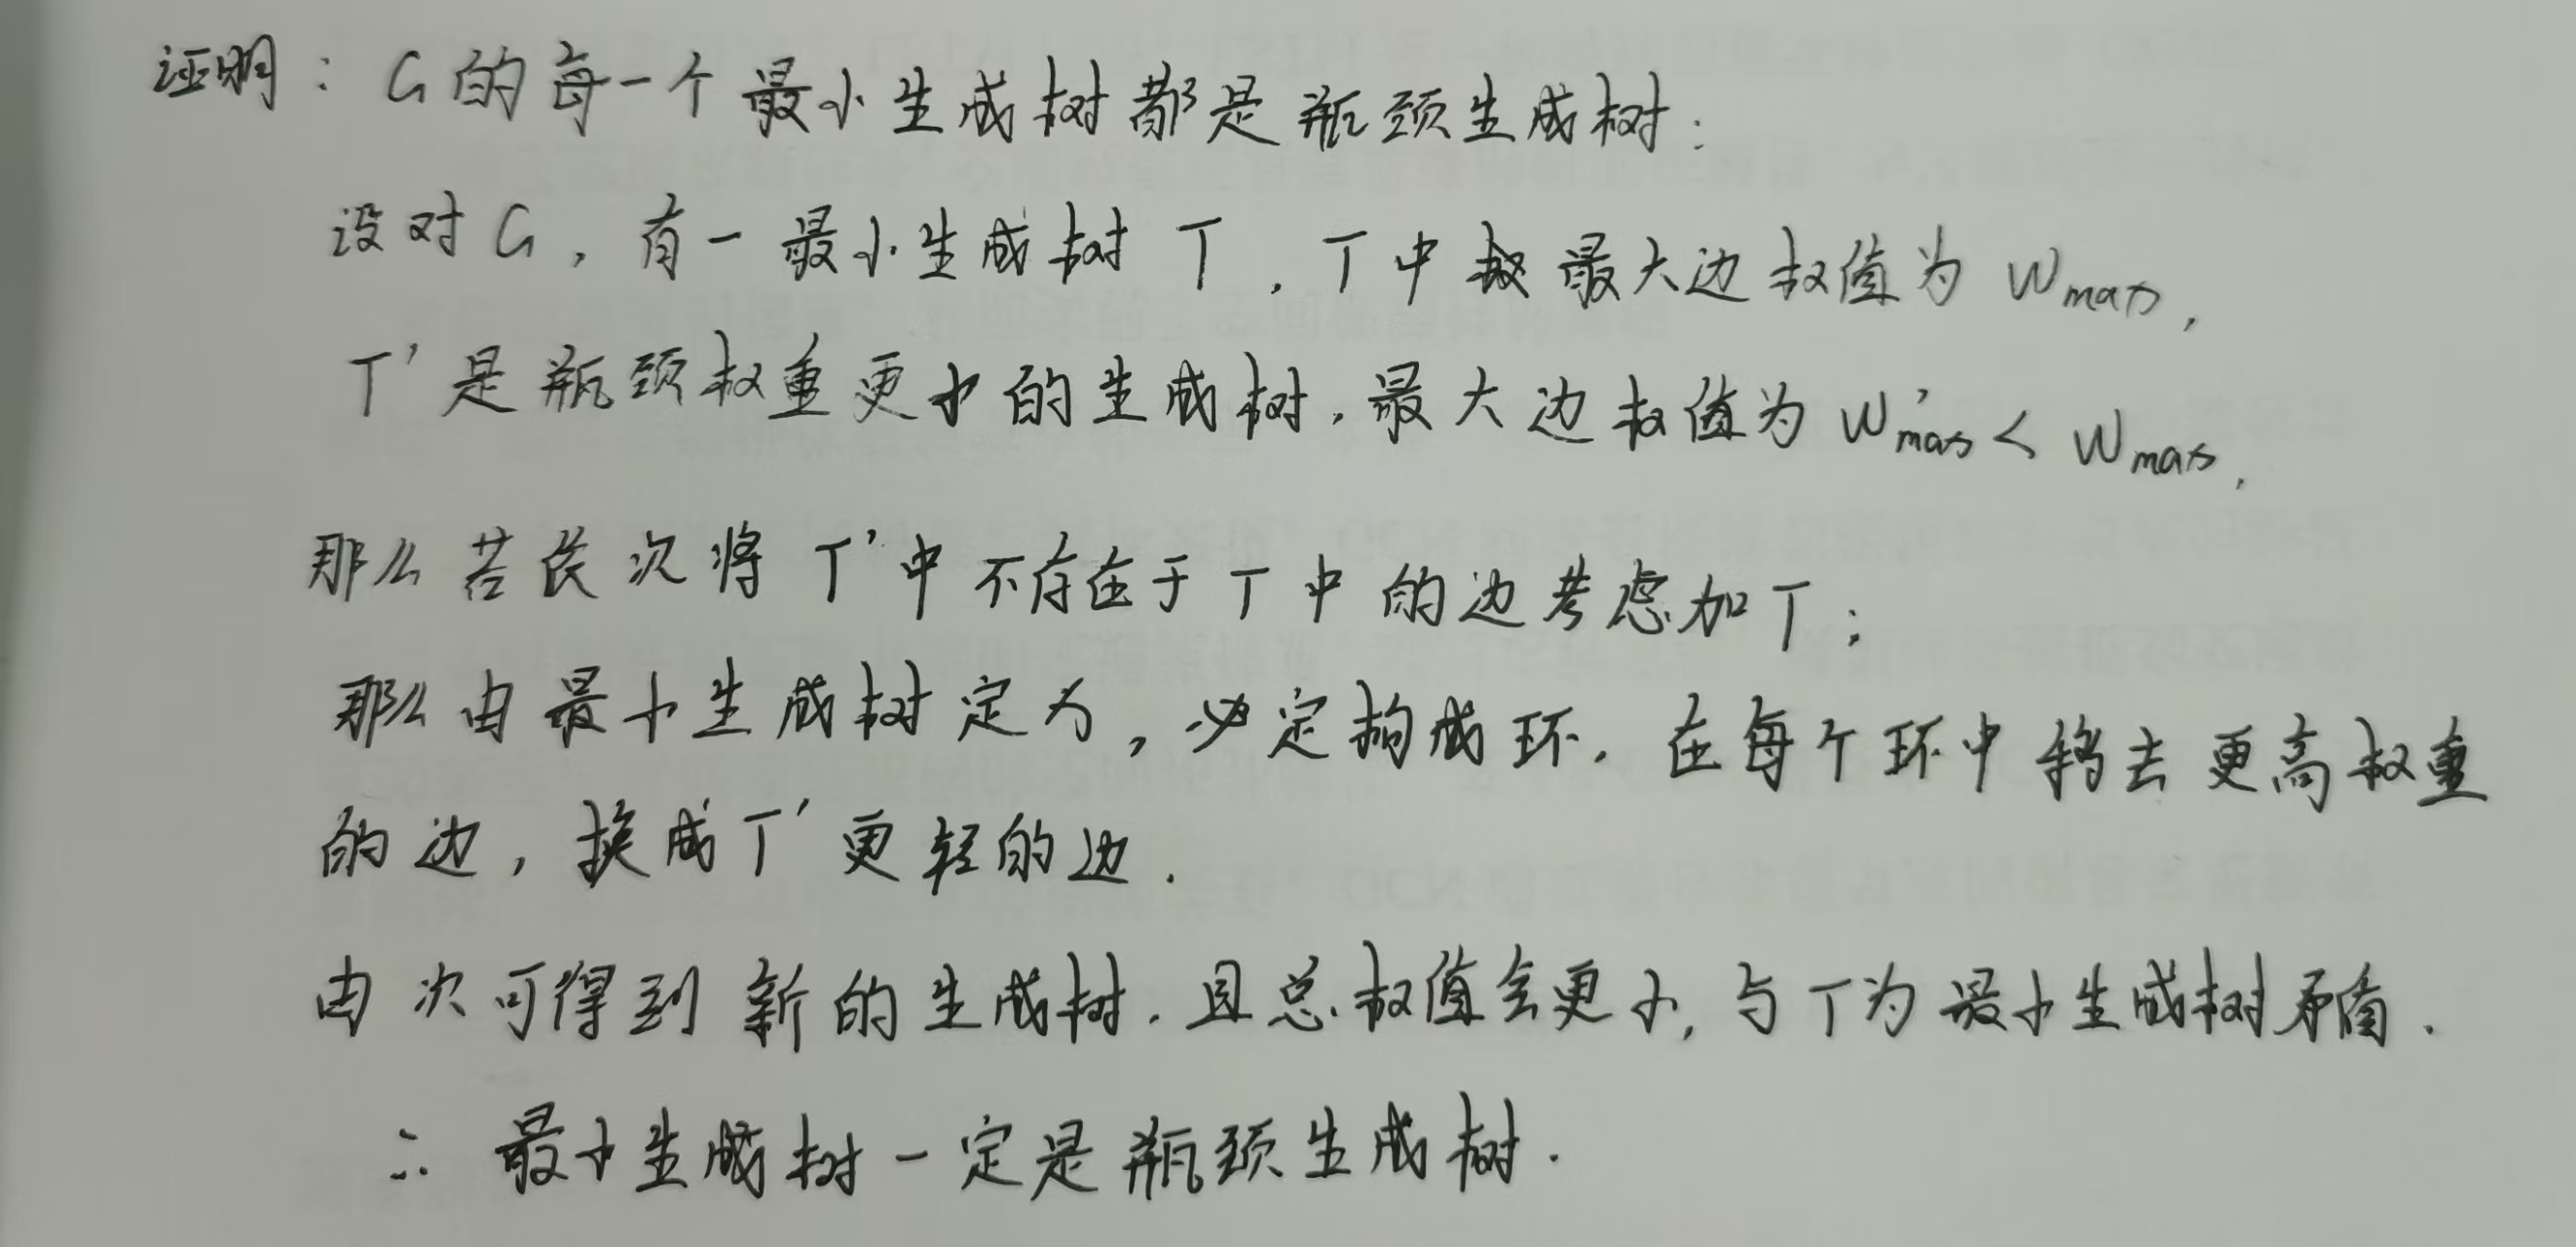 证明：G的每一个最小生成树都是瓶颈生成树：
设对G，有一最小生成树T，T中最大边权值为Wmax，
T'是瓶颈权重更小的生成树，最大边权值为W'max < Wmax，
那么若依次将T'中不存在于T中的边考虑加T；
那么由最小生成树定为，必定构成环，在每个环中移去更高权重
的边，换成T'更轻的边．
由次可得到新的生成树．且总权值会更小，与T为最小生成树矛盾．
∴ 最小生成树一定是瓶颈生成树．